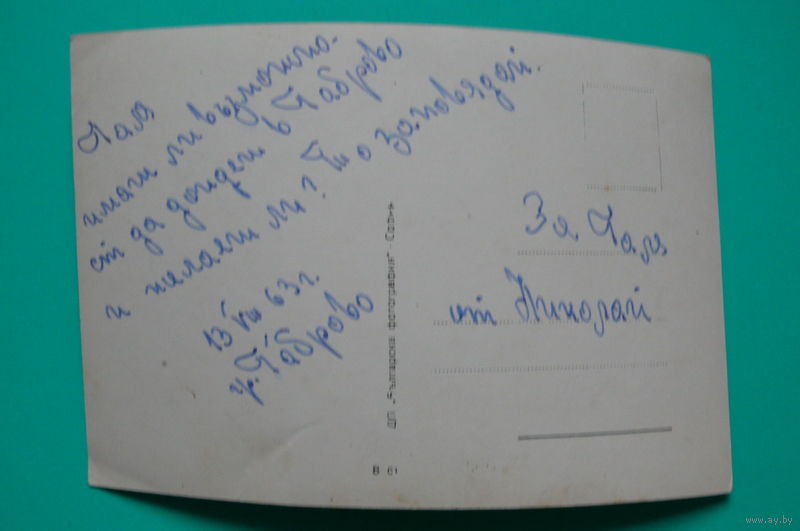 Галя
имаш ли възможно-
ст да дойдеш в Габрово
и желаеш ли? Що заповядай.
13 VIII 63 г.
гр. Габрово
ДП „Българска фотография" - София
За Галя
от Николай
www.ay.by